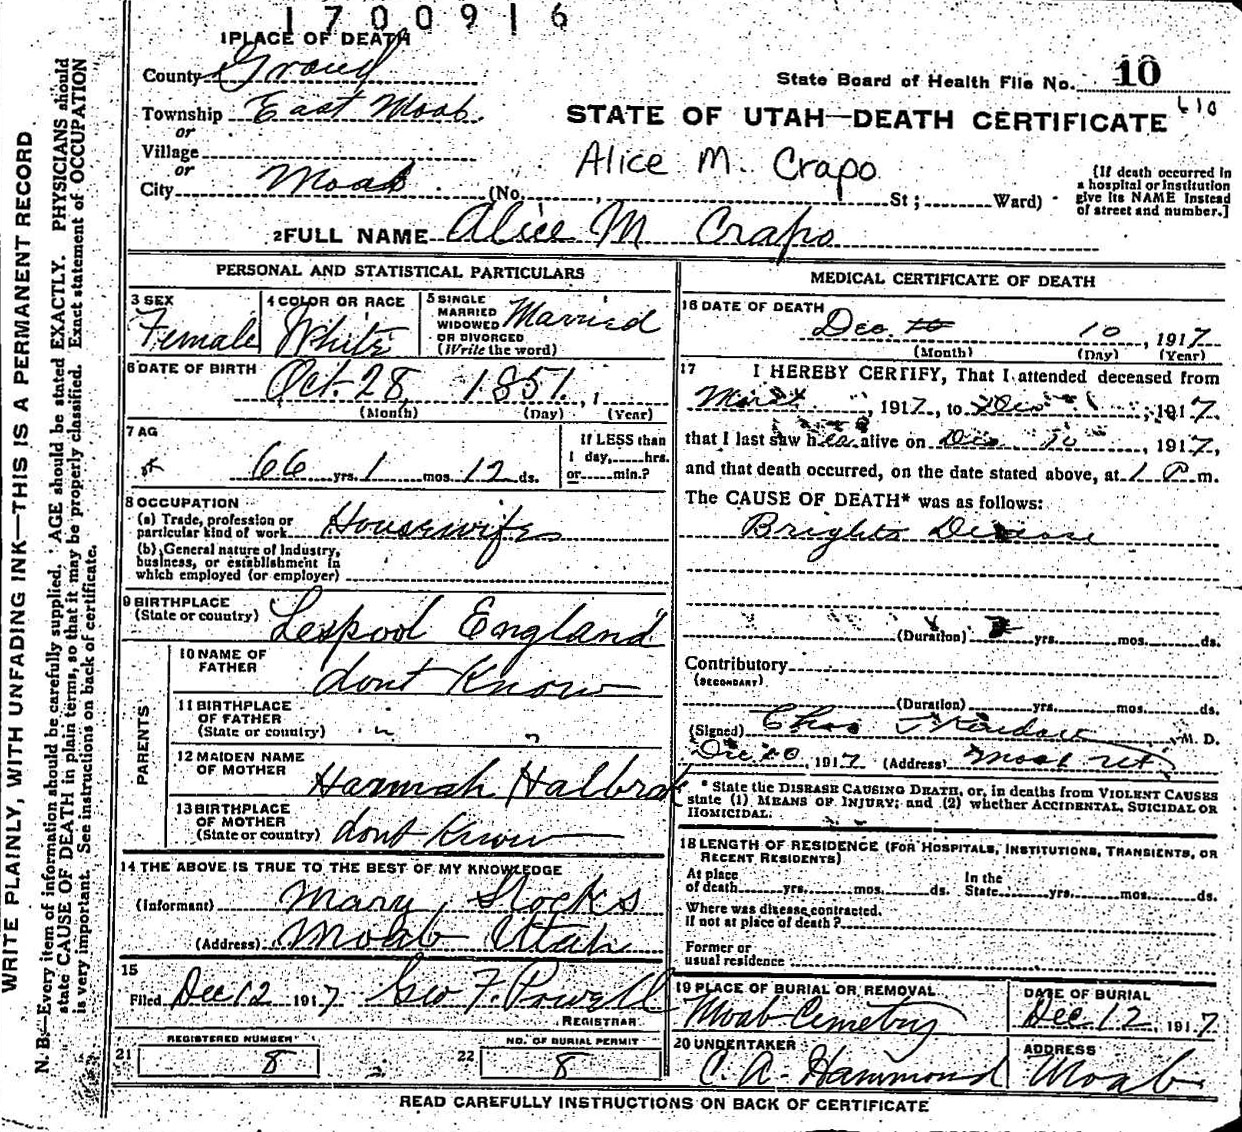 1700916
1 PLACE OF DEATH
County Grand
State Board of Health File No. 10
Township East Moab.
STATE OF UTAH—DEATH CERTIFICATE 610
or
Village
or
Alice M. Crapo
City Moab (No. , St; Ward)
[If death occurred in
a hospital or Institution
give its NAME Instead
of street and number.]
2 FULL NAME Alice M Crapo
PERSONAL AND STATISTICAL PARTICULARS
3 SEX
Female
4 COLOR OR RACE
White
5 SINGLE
MARRIED
WIDOWED
OR DIVORCED
(Write the word)
Married
6 DATE OF BIRTH
Oct. 28, 1851.
(Month) (Day) (Year)
7 AG
66 yrs. 1 mos. 12 ds.
If LESS than
1 day,......hrs.
or......min.?
8 OCCUPATION
(a) Trade, profession or
particular kind of work Housewife
(b) General nature of Industry,
business, or establishment in
which employed (or employer)
9 BIRTHPLACE
(State or country) England
PARENTS
10 NAME OF
FATHER dont Know
11 BIRTHPLACE
OF FATHER
(State or country) " "
12 MAIDEN NAME
OF MOTHER Hannah
13 BIRTHPLACE
OF MOTHER
(State or country) dont Know
14 THE ABOVE IS TRUE TO THE BEST OF MY KNOWLEDGE
(Informant) Mary Stocks
(Address) Moab Utah
15
Filed Dec 12 1917 Geo F. Powell
REGISTRAR
21 REGISTERED NUMBER
8
22 NO. OF BURIAL PERMIT
8
MEDICAL CERTIFICATE OF DEATH
16 DATE OF DEATH
Dec. 10, 1917
(Month) (Day) (Year)
17 I HEREBY CERTIFY, That I attended deceased from
, 1917, to , 1917.
that I last saw her alive on Dec 10, 1917,
and that death occurred, on the date stated above, at 1 P m.
The CAUSE OF DEATH* was as follows:
Brights Disease
(Duration) yrs. mos. ds.
Contributory
(SECONDARY)
(Duration) yrs. mos. ds.
(Signed) Chas M. D.
Dec 10, 1917 (Address) Moab Ut
* State the DISEASE CAUSING DEATH, or, in deaths from VIOLENT CAUSES
state (1) MEANS OF INJURY; and (2) whether ACCIDENTAL, SUICIDAL OR
HOMICIDAL.
18 LENGTH OF RESIDENCE (FOR HOSPITALS, INSTITUTIONS, TRANSIENTS, OR
RECENT RESIDENTS)
At place
of death yrs. mos. ds.
In the
State yrs. mos. ds.
Where was disease contracted.
if not at place of death?
Former or
usual residence
19 PLACE OF BURIAL OR REMOVAL
Moab Cemetery
DATE OF BURIAL
Dec. 12, 1917
20 UNDERTAKER
C. A. Hammond
ADDRESS
Moab
READ CAREFULLY INSTRUCTIONS ON BACK OF CERTIFICATE
WRITE PLAINLY, WITH UNFADING INK—THIS IS A PERMANENT RECORD
N. B.—Every item of information should be carefully supplied. AGE should be stated EXACTLY. PHYSICIANS should
state CAUSE OF DEATH in plain terms, so that it may be properly classified. Exact statement of OCCUPATION
is very important. See instructions on back of certificate.